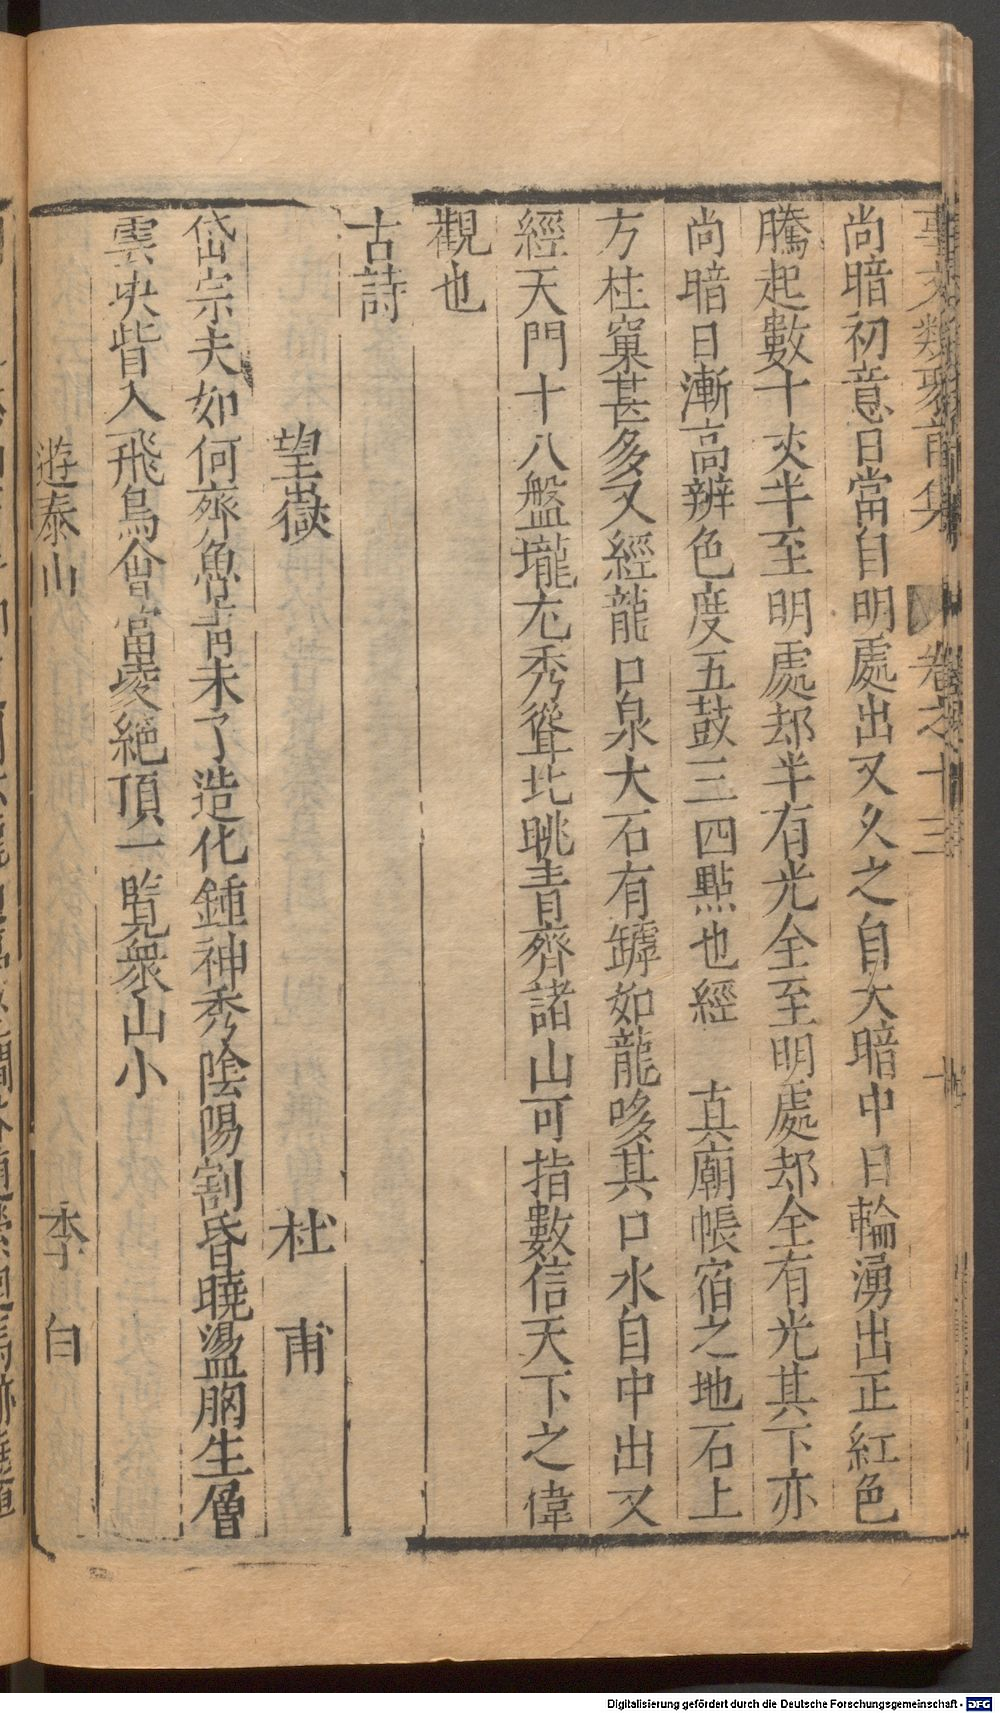 事文類聚前集 卷之十三
尚暗初意日當自明處出又久之自大暗中日輪湧出正紅色
騰起數十丈半至明處却半有光全至明處却全有光其下亦
尚暗日漸高辨色度五鼓三四點也經 真廟帳宿之地石上
方柱窠甚多又經龍口泉大石有罅如龍哆其口水自中出又
經天門十八盤壠尤秀聳北眺青齊諸山可指數信天下之偉
觀也
古詩
望嶽 杜甫
岱宗夫如何齊魯青未了造化鍾神秀陰陽割昏曉盪胸生層
雲決眥入飛鳥會當凌絕頂一覽衆山小
遊泰山 李白
Digitalisierung gefördert durch die Deutsche Forschungsgemeinschaft - DFG